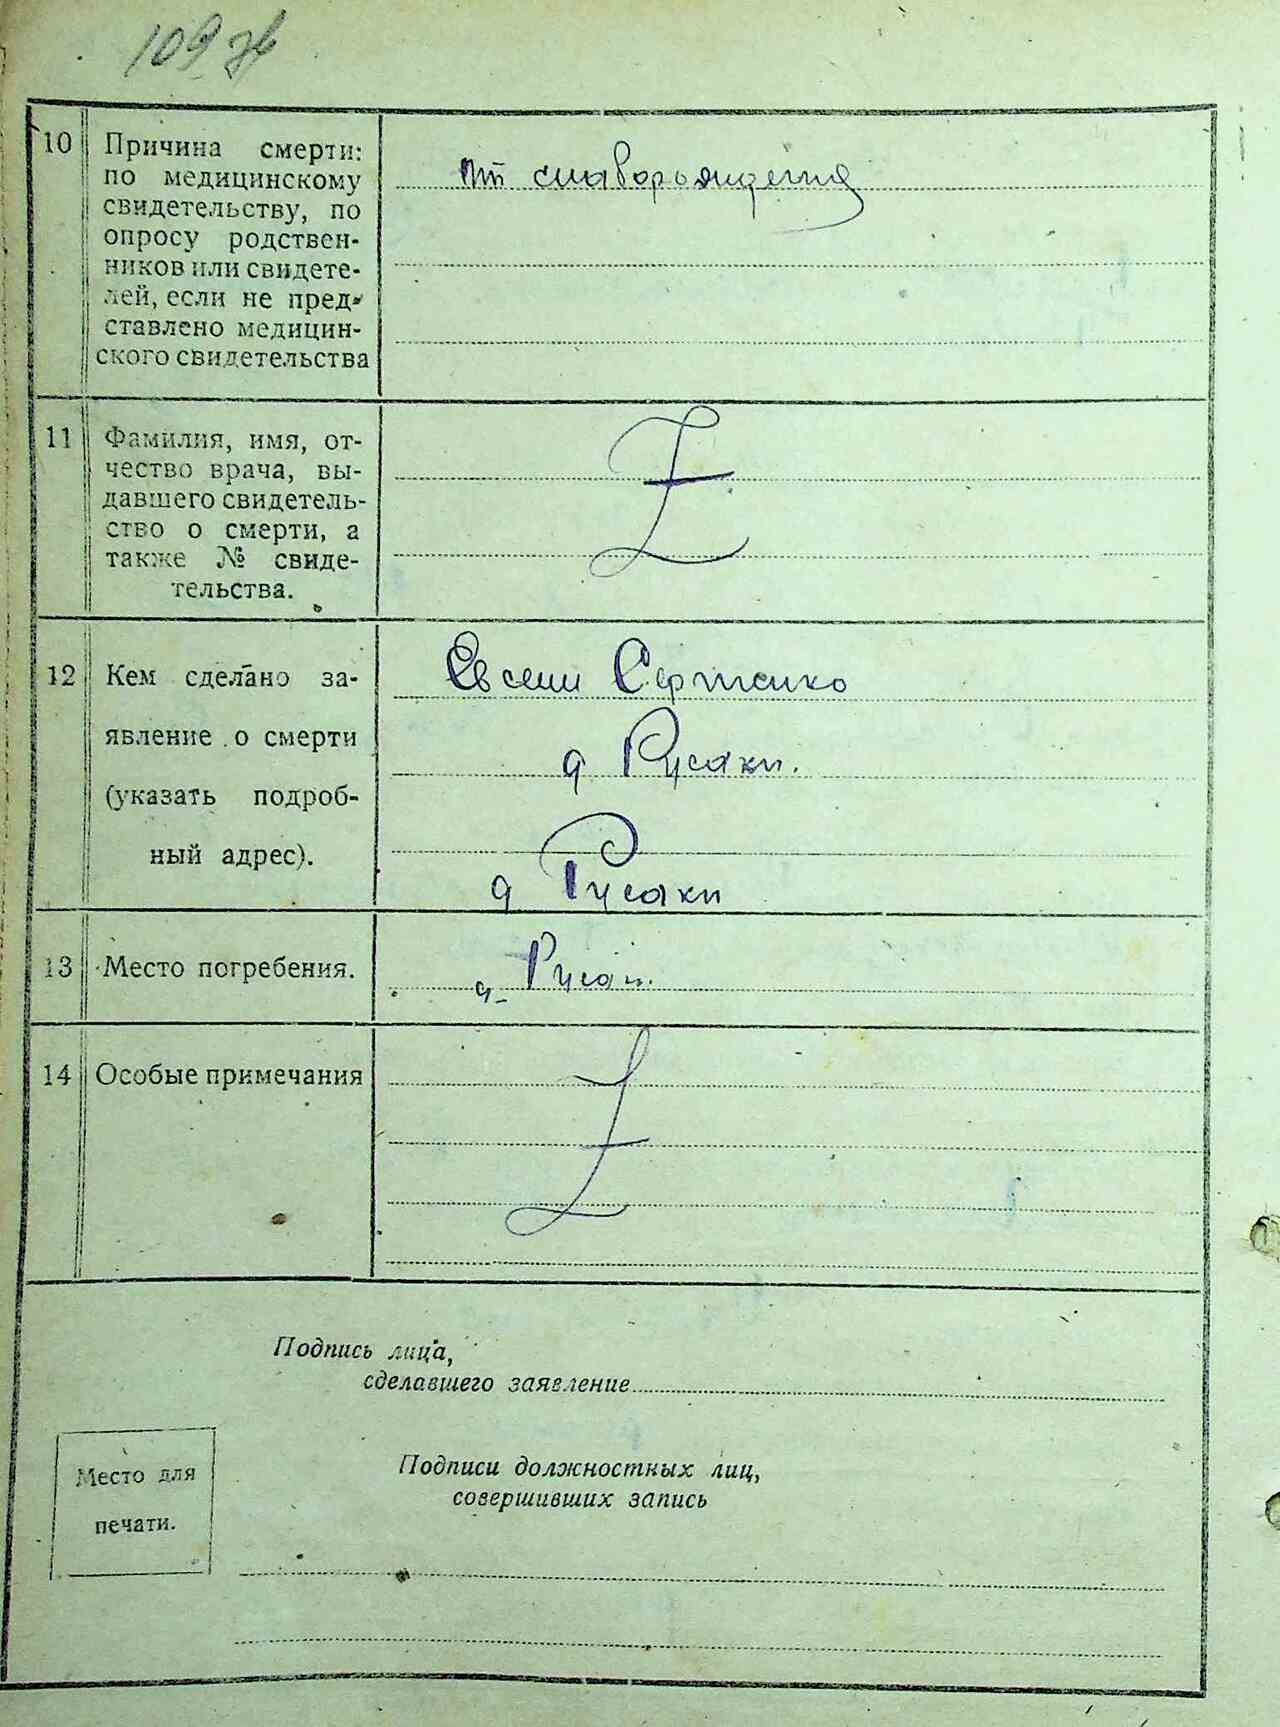 109
10 Причина смерти:
по медицинскому
свидетельству, по
опросу родствен-
ников или свидете-
лей, если не пред-
ставлено медицин-
ского свидетельства
11 Фамилия, имя, от-
чество врача, вы-
давшего свидетель-
ство о смерти, а
также № свиде-
тельства.
12 Кем сделано за-
явление о смерти
(указать подроб-
ный адрес).
д Русаки.
д Русаки
13 Место погребения.
д-
14 Особые примечания
Подпись лица,
сделавшего заявление
Место для
печати.
Подписи должностных лиц,
совершивших запись